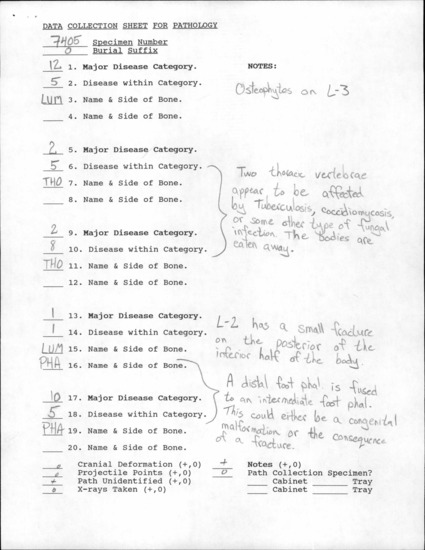 DATA COLLECTION SHEET FOR PATHOLOGY
7405 Specimen Number
0 Burial Suffix
12 1. Major Disease Category. NOTES:
5 2. Disease within Category. Osteophytes on L-3
LUM 3. Name & Side of Bone.
4. Name & Side of Bone.
2 5. Major Disease Category.
5 6. Disease within Category.
THO 7. Name & Side of Bone.
8. Name & Side of Bone.
Two thoracic vertebrae
appear to be affected
by Tuberculosis, coccidiomycosis,
or some other type of fungal
infection. The bodies are
eaten away.
2 9. Major Disease Category.
8 10. Disease within Category.
THO 11. Name & Side of Bone.
12. Name & Side of Bone.
1 13. Major Disease Category.
1 14. Disease within Category.
LUM 15. Name & Side of Bone.
PHA 16. Name & Side of Bone.
L-2 has a small fracture
on the posterior of the
inferior half of the body.
10 17. Major Disease Category.
5 18. Disease within Category.
PHA 19. Name & Side of Bone.
20. Name & Side of Bone.
A distal foot phal. is fused
to an intermediate foot phal.
This could either be a congenital
malformation or the consequence
of a fracture.
0 Cranial Deformation (+,0) + Notes (+,0)
0 Projectile Points (+,0) 0 Path Collection Specimen?
+ Path Unidentified (+,0) Cabinet Tray
0 X-rays Taken (+,0) Cabinet Tray